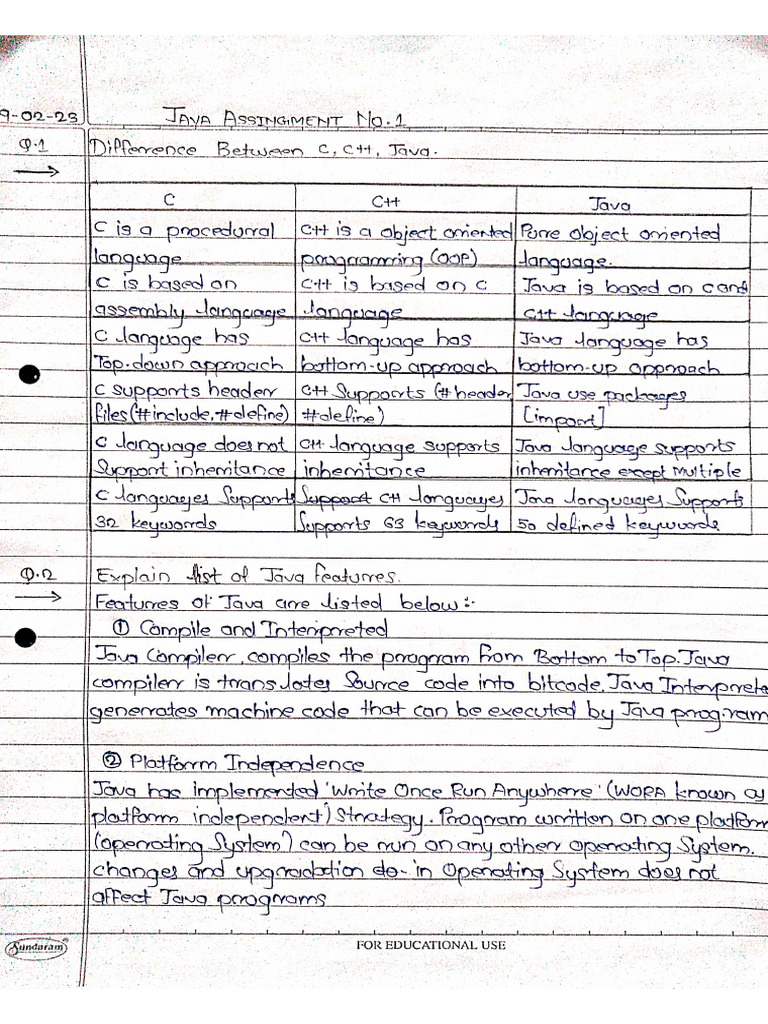 9-02-23
JAVA ASSINGMENT NO.1
Q.1
Difference Between C, C++, Java.
C
C++
Java
C is a procedural
language
C++ is a object oriented
programming (OOP)
Pure object oriented
language.
C is based on
assembly language
C++ is based on C
language
Java is based on C and
C++ language
C language has
Top-down approach
C++ language has
bottom-up approach
Java language has
bottom-up approach
C supports header
files(#include,#define)
C++ Supports (#header
#define)
Java use packages
[import]
C language does not
Support inheritance
C++ language supports
inheritance
Java language supports
inheritance except multiple
C languages Supports
32 keywords
Support C++ languages
Supports 63 keywords
Java languages Supports
50 defined keywords
Q.2
Explain list of Java features.
Features of Java are listed below:-
① Compile and Interpreted
Java Compiler, compiles the program from Bottom to Top. Java
compiler is translates Source code into bitcode, Java Interprete
generates machine code that can be executed by Java program
② Platform Independence
Java has implemented 'Write Once Run Anywhere' (WORA known as
platform independent) Strategy. Program written on one platform
(operating System) can be run on any other operating System.
changes and upgradation do in Operating System does not
affect Java programs
Sundaram
FOR EDUCATIONAL USE